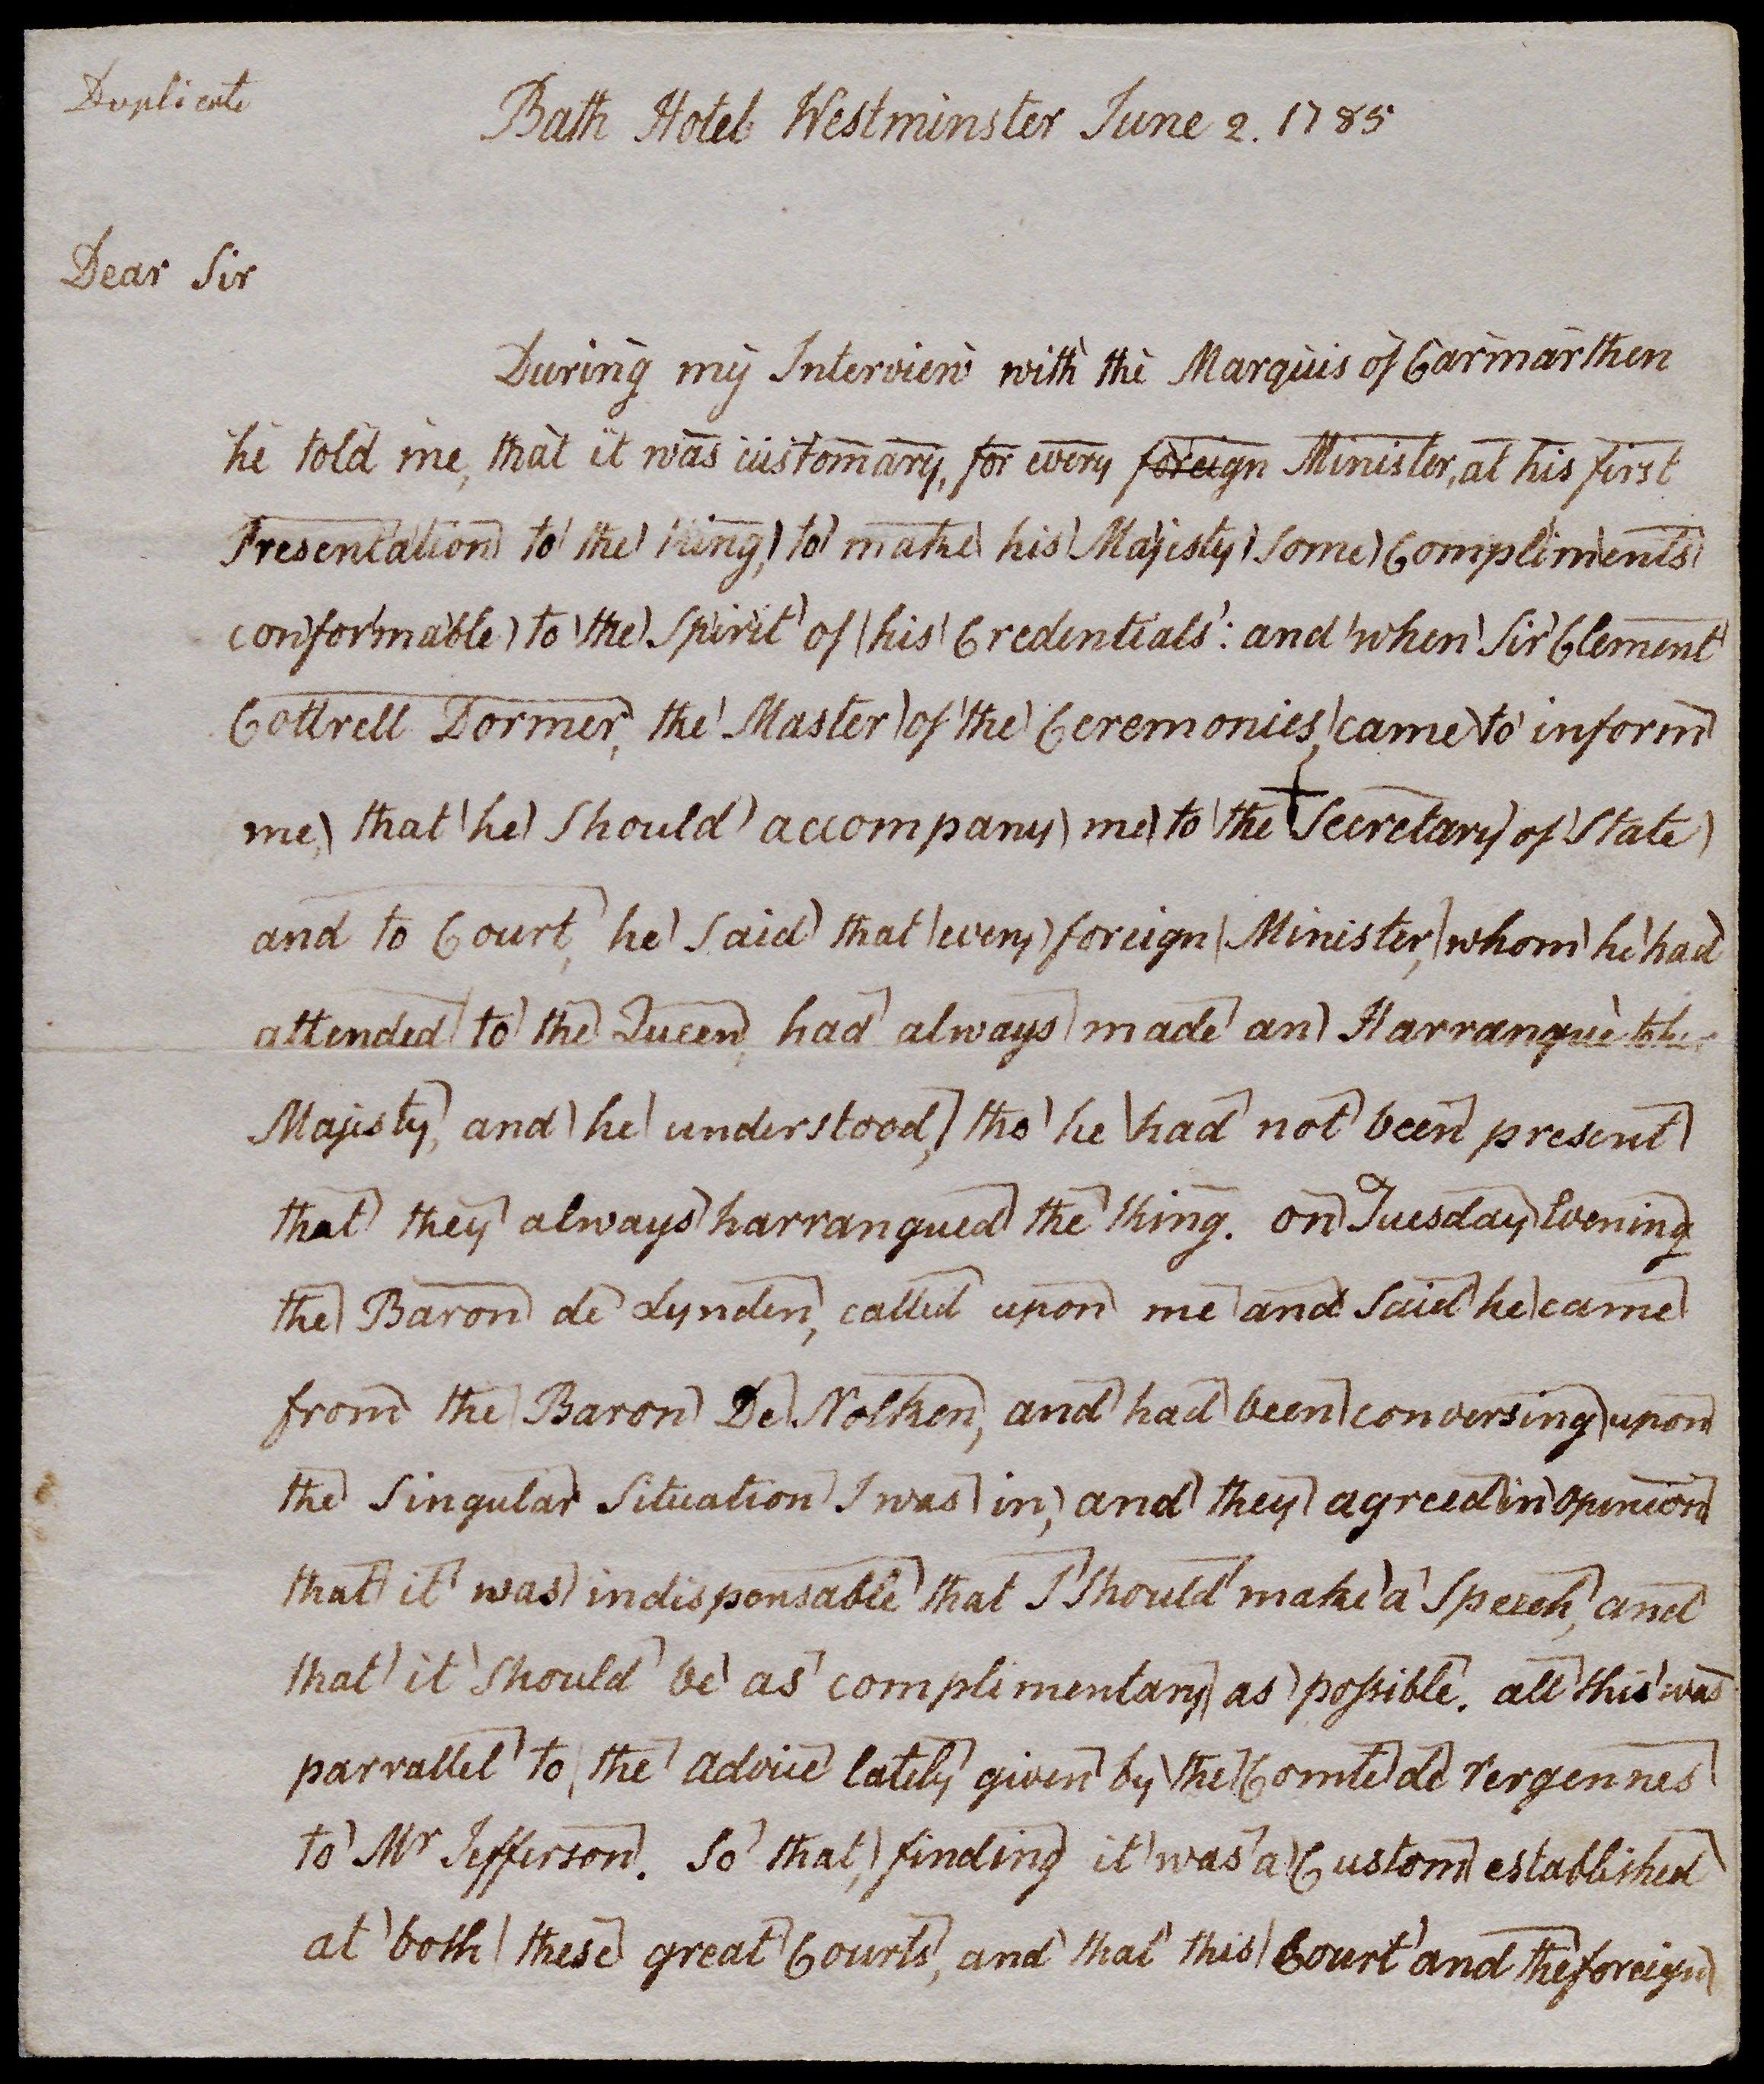 Duplicate
Bath Hotel Westminster June 2. 1785
Dear Sir
During my Interview with the Marquis of Carmarthen
he told me, that it was customary, for every foreign Minister, at his first
Presentation to the King, to make his Majesty some Compliments
conformable to the Spirit of his Credentials: and when Sir Clement
Cottrell Dormer, the Master of the Ceremonies, came to inform
me, that he should accompany me to the Secretary of State
and to Court, he said that every foreign Minister, whom he had
attended to the Queen, had always made an Harrangue to her
Majesty, and he understood, tho' he had not been present
that they always harrangued the King. on Tuesday Evening
the Baron de Lynden, called upon me and said he came
from the Baron De Nolken, and had been conversing upon
the singular Situation I was in, and they agreed in opinion
that it was indispensable that I should make a Speech, and
that it should be as complimentary as possible. all this was
parrallel to the advice lately given by the Comte de Vergennes
to Mr Jefferson. So that, finding it was a Custom established
at both these great Courts, and that this Court and the foreign